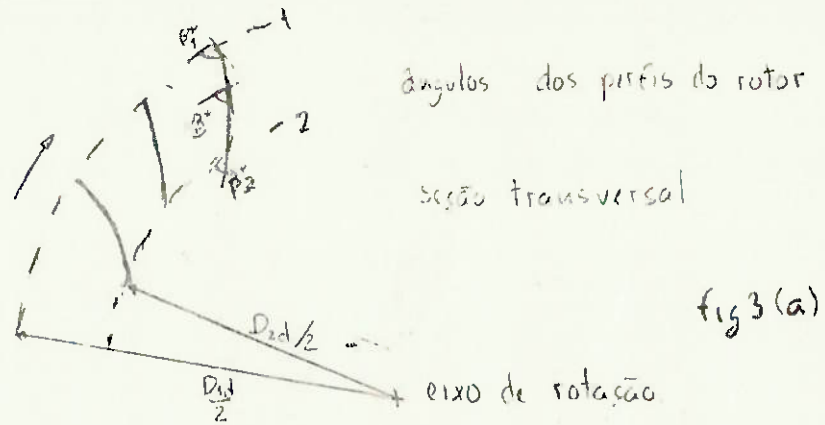 β*1
1
ângulos dos perfis do rotor
β*
2
β*2
secção transversal
fig 3 (a)
D2d/2
D1d/2
eixo de rotação